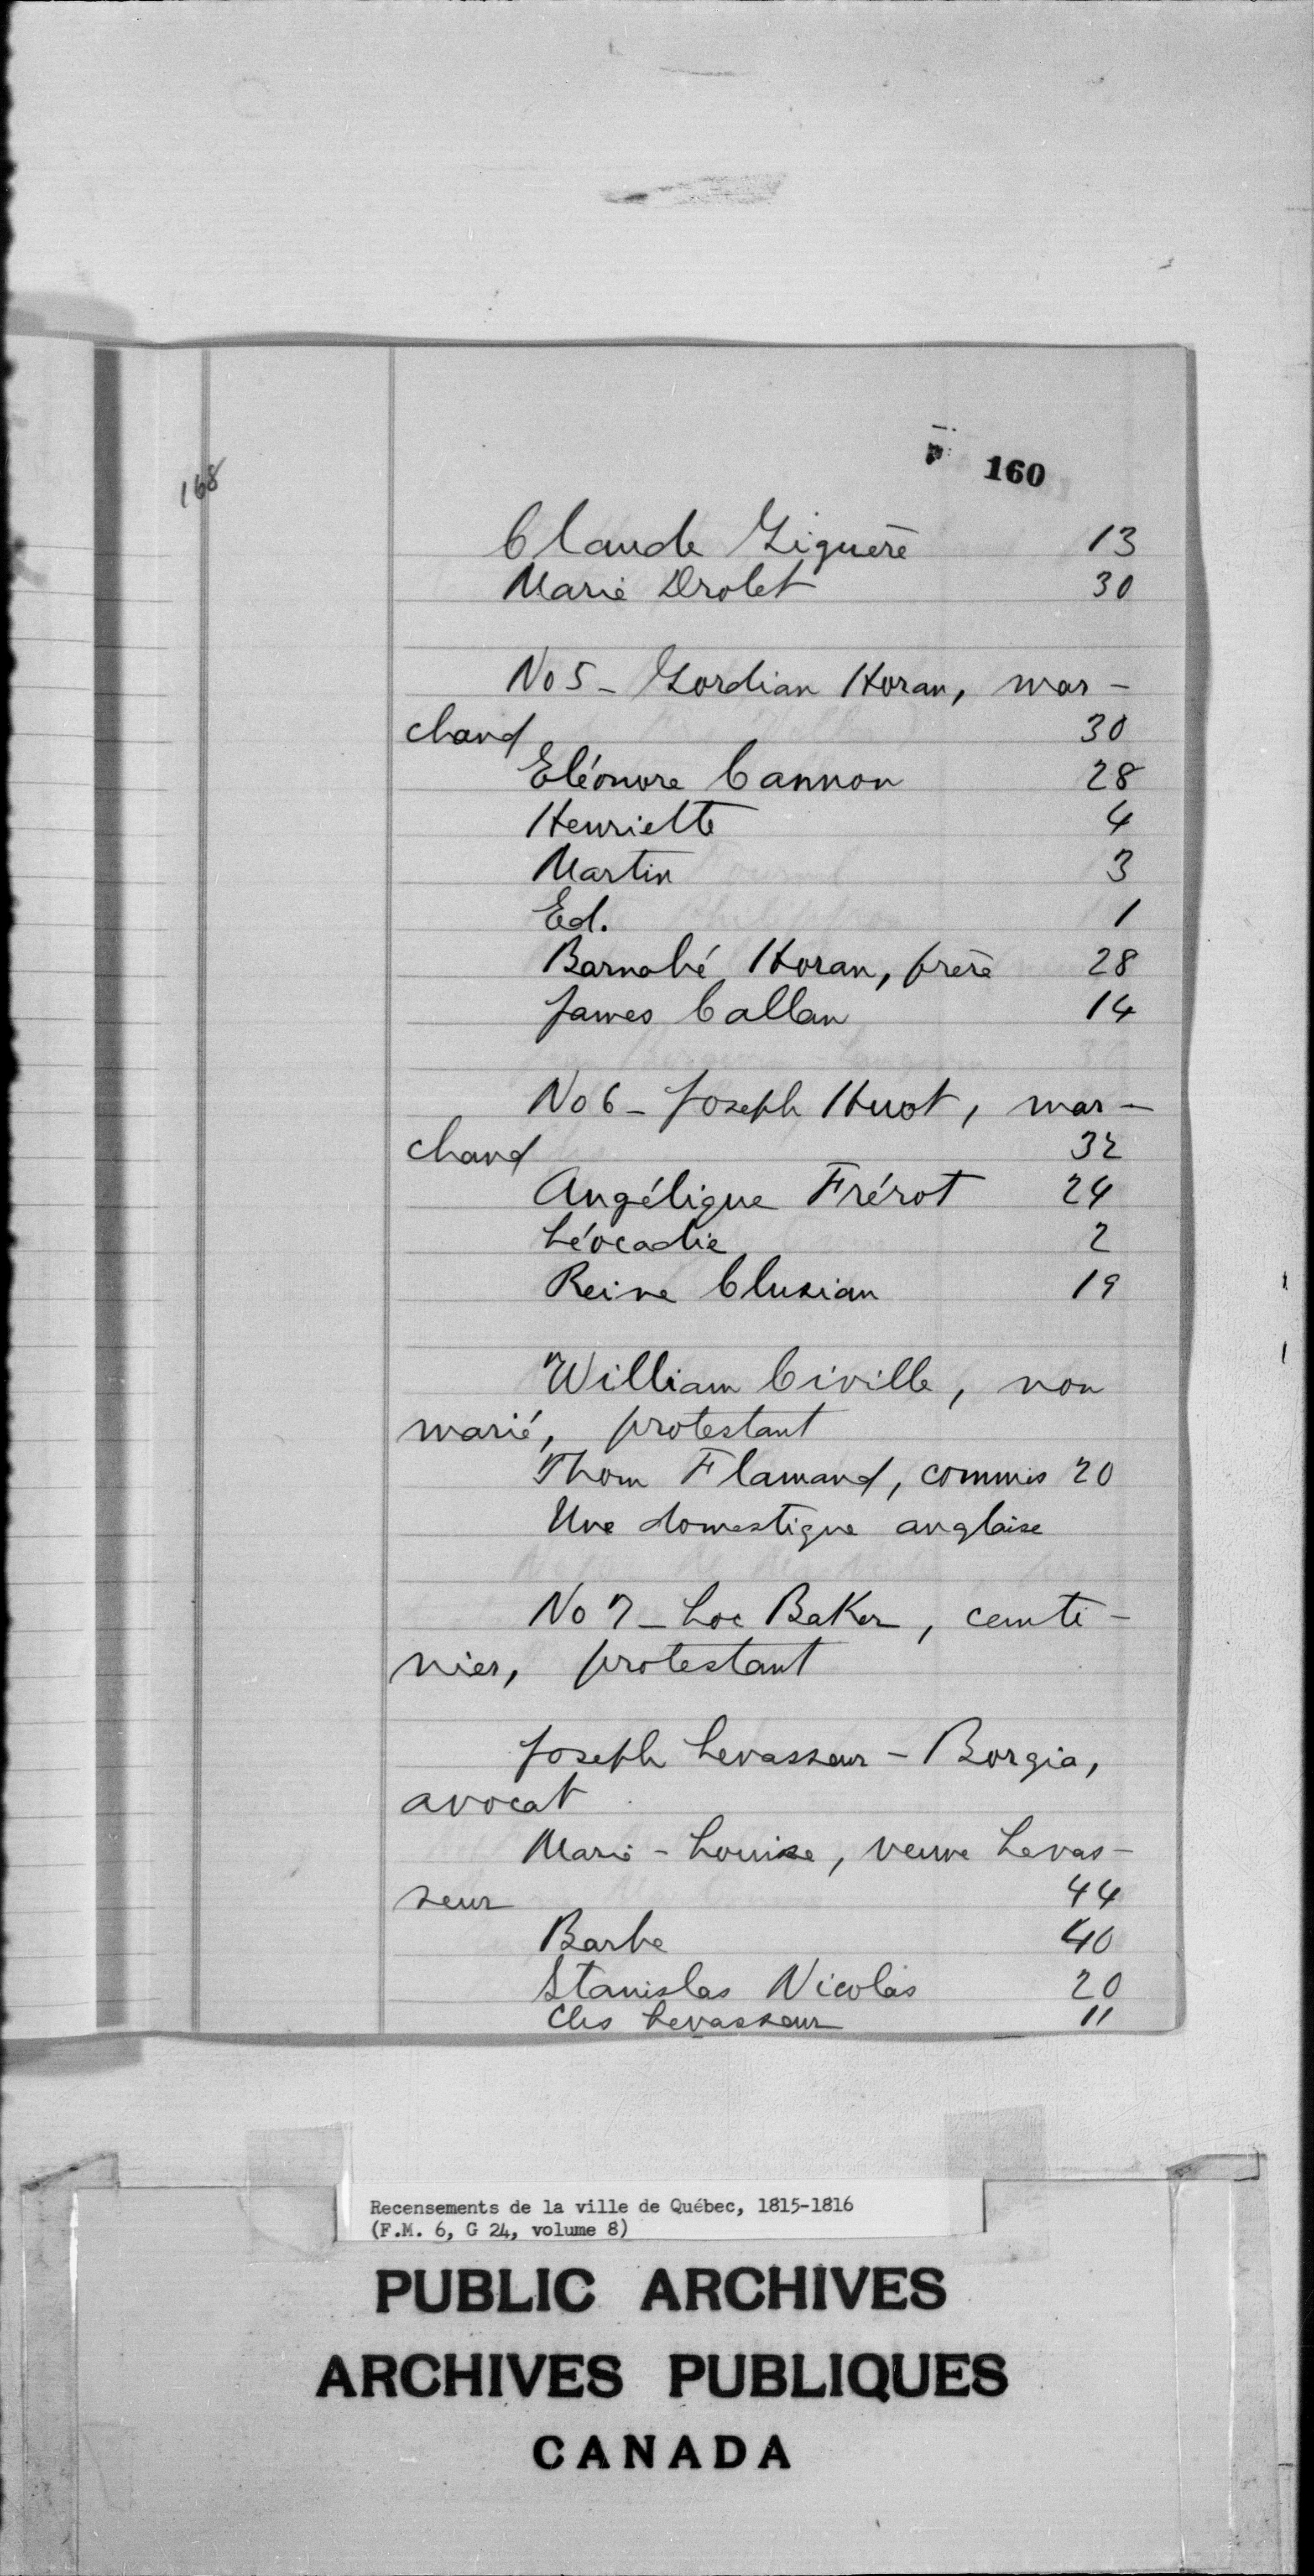 160
168
Claude Giguère 13
Marie Drolet 30
No 5 - Gordian Horan, mar-
chand 30
Eléonore Cannon 28
Henriette 4
Martin 3
Ed. 1
Barnabé Horan, frère 28
James Callan 14
No 6 - Joseph Huot, mar-
chand 32
Angélique Frérot 24
Léocadie 2
Reine Clusian 19
William Civille, non
marié, protestant
Thom Flamand, commis 20
Une domestique anglaise
No 7 - Loc Baker, canti-
nier, protestant
Joseph Levasseur - Borgia,
avocat
Marie - Louise, veuve Levas-
seur 44
Barbe 40
Stanislas Nicolas 20
Chs Levasseur 11
Recensements de la ville de Québec, 1815-1816
(F.M. 6, G 24, volume 8)
PUBLIC ARCHIVES
ARCHIVES PUBLIQUES
CANADA